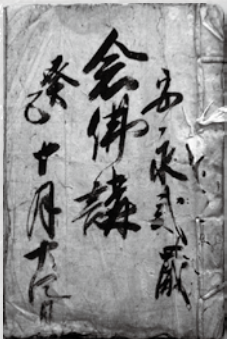 安永弐歳
念佛講
癸巳十月十六日